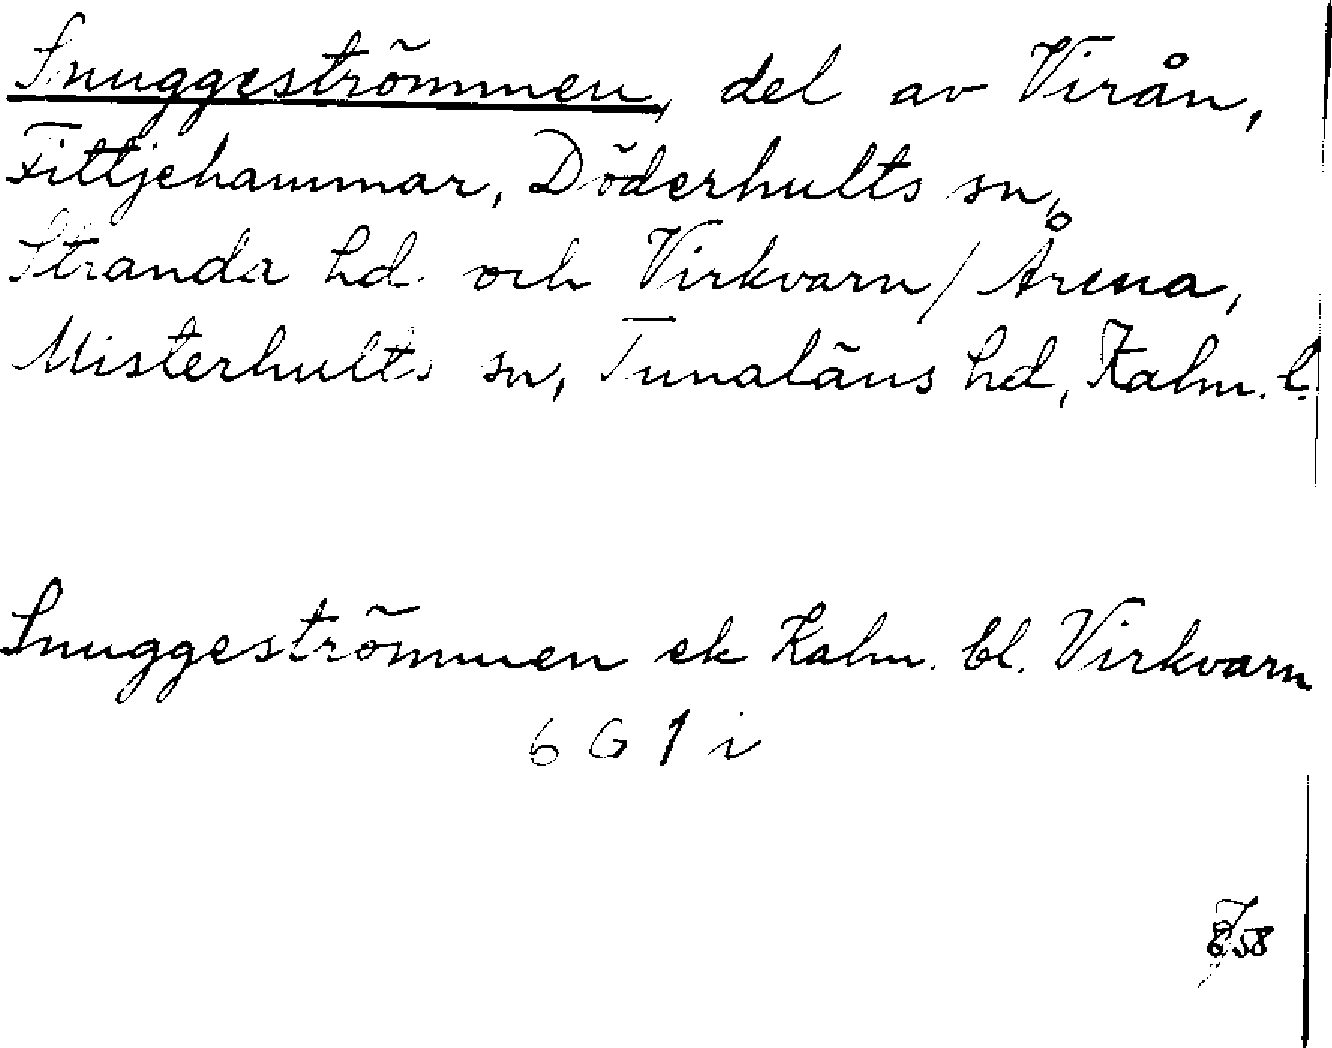 Snuggeströmmen, del av Virån,
Fittjehammar, Döderhults sn,
Stranda hd och Virkvarn/Årena,
Misterhults sn, Tunaläns hd, Kalm. l.
Snuggeströmmen ek Kalm. bl. Virkvarn
6 G 1 i
58